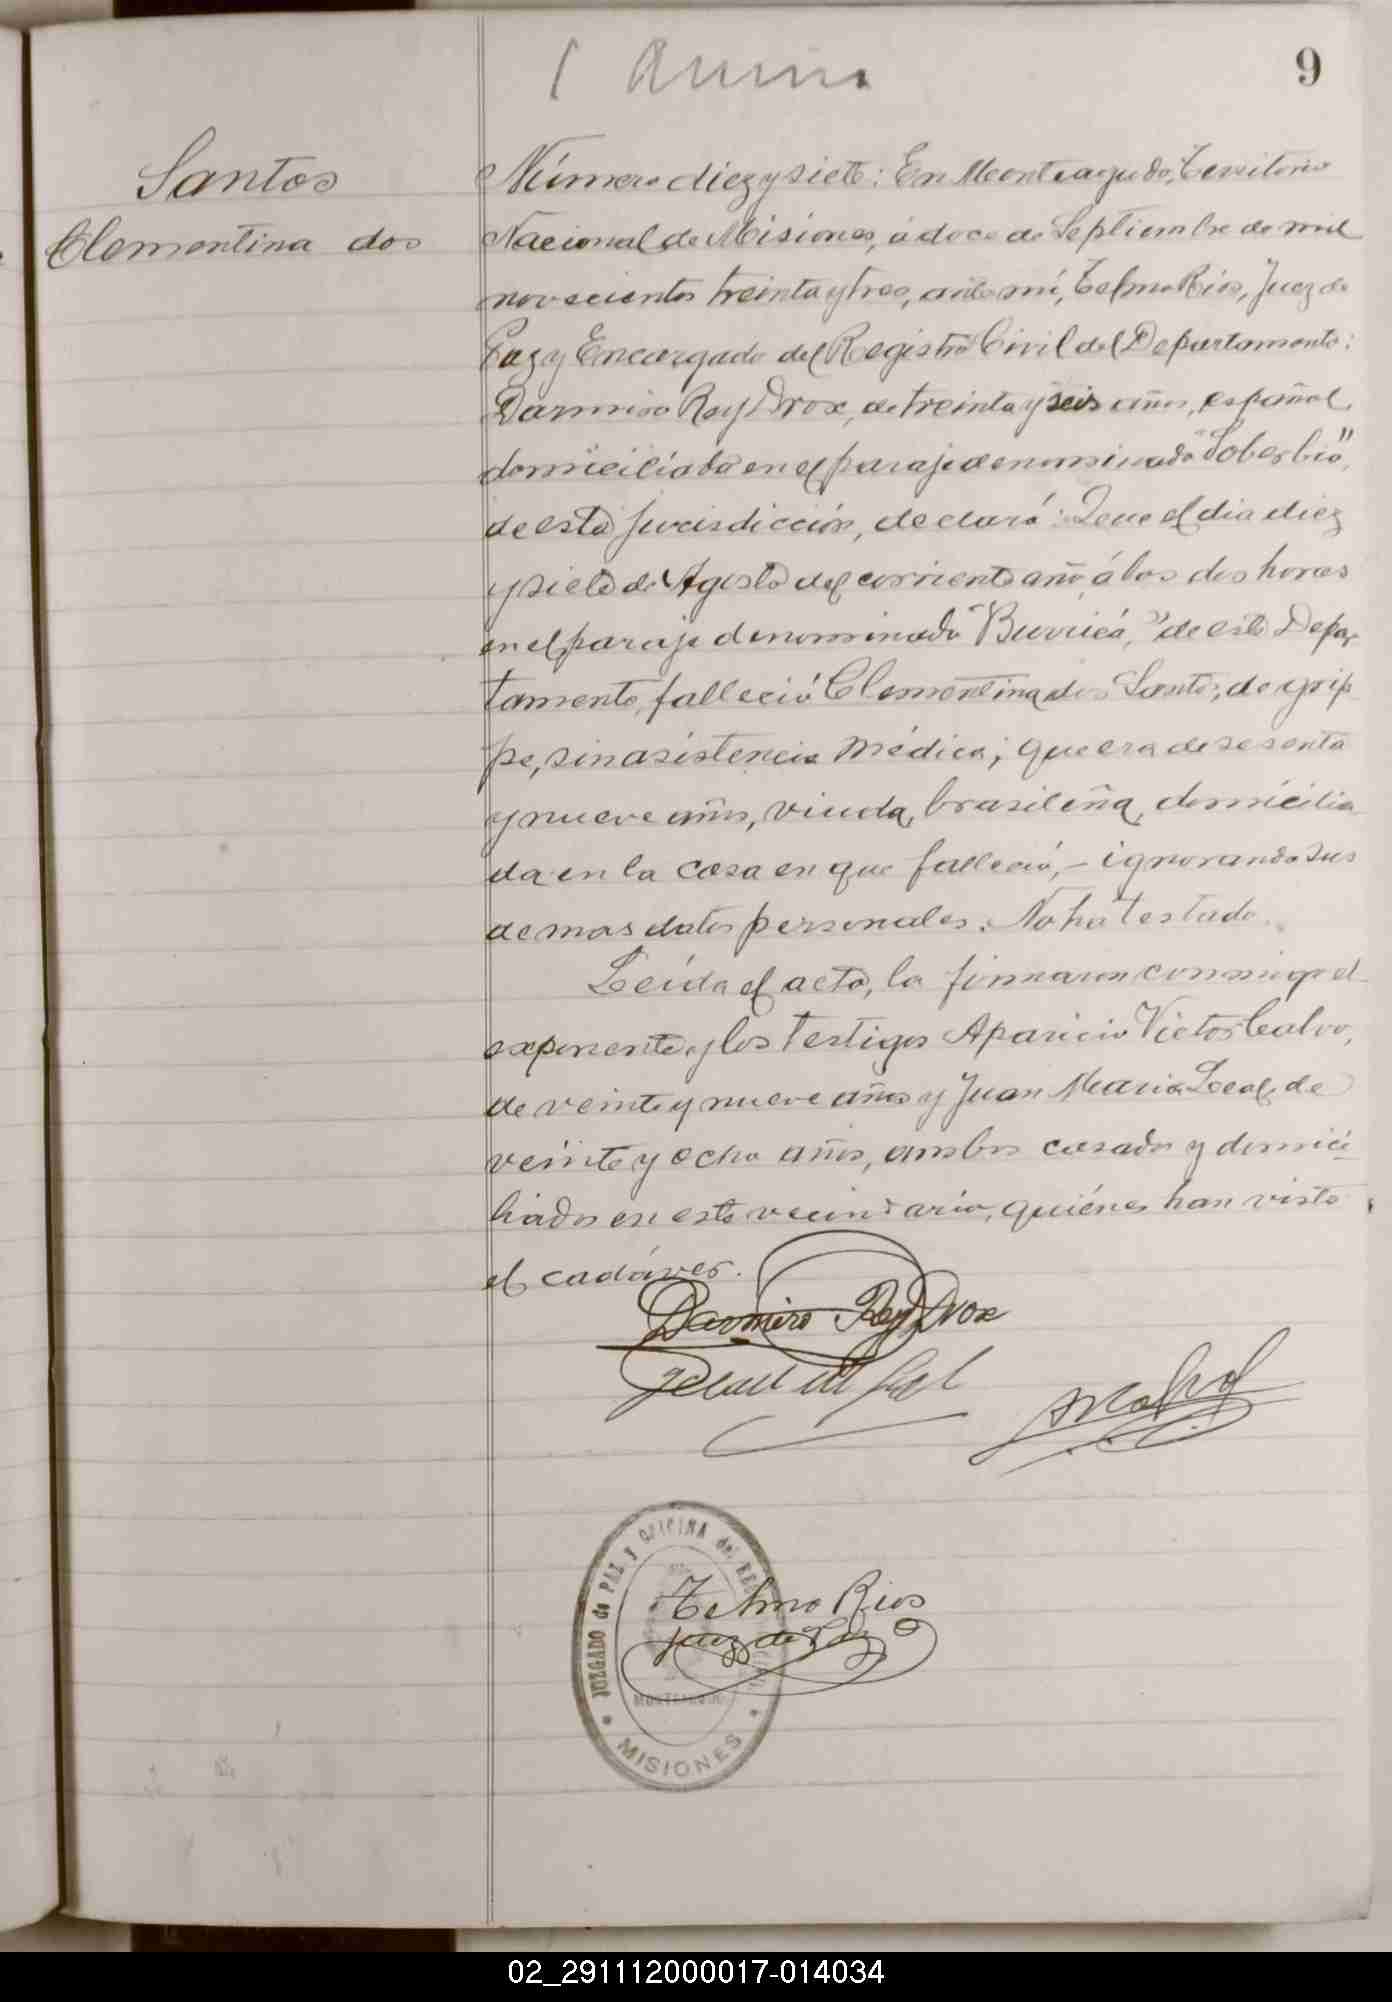 9
Santos
Clementina dos
Número diez y siete: En Monteagudo, Territorio
Nacional de Misiones, á doce de Septiembre de mil
novecientos treinta y tres, ante mí, Telmo Rios, Juez de
Paz y Encargado del Registro Civil del Departamento:
Darmiro Rey Drox, de treinta y seis años, español,
domiciliado en el paraje denominado "Soberbio",
de esta jurisdicción, declaró: Que el dia diez
y siete de Agosto del corriente año, á las dos horas
en el paraje denominado "Burricá," de este Depar
tamento, falleció Clementina dos Santos, de grip
pe, sin asistencia médica; que era de sesenta
y nueve años, viuda, brasileña, domicilia
da en la casa en que falleció, - ignorando sus
demas datos personales. No ha testado.
Leída el acta, la firmaron conmigo el
exponente y los testigos Aparicio Victor Calvo,
de veinte y nueve años y Juan Maria Leal, de
veinte y ocho años, ambos casados y domici
liados en este vecindario, quiénes han visto
el cadáver.
Darmiro Rey Drox
Telmo Rios
Juez de Paz
JUZGADO de PAZ y OFICINA del
MISIONES
02_291112000017-014034